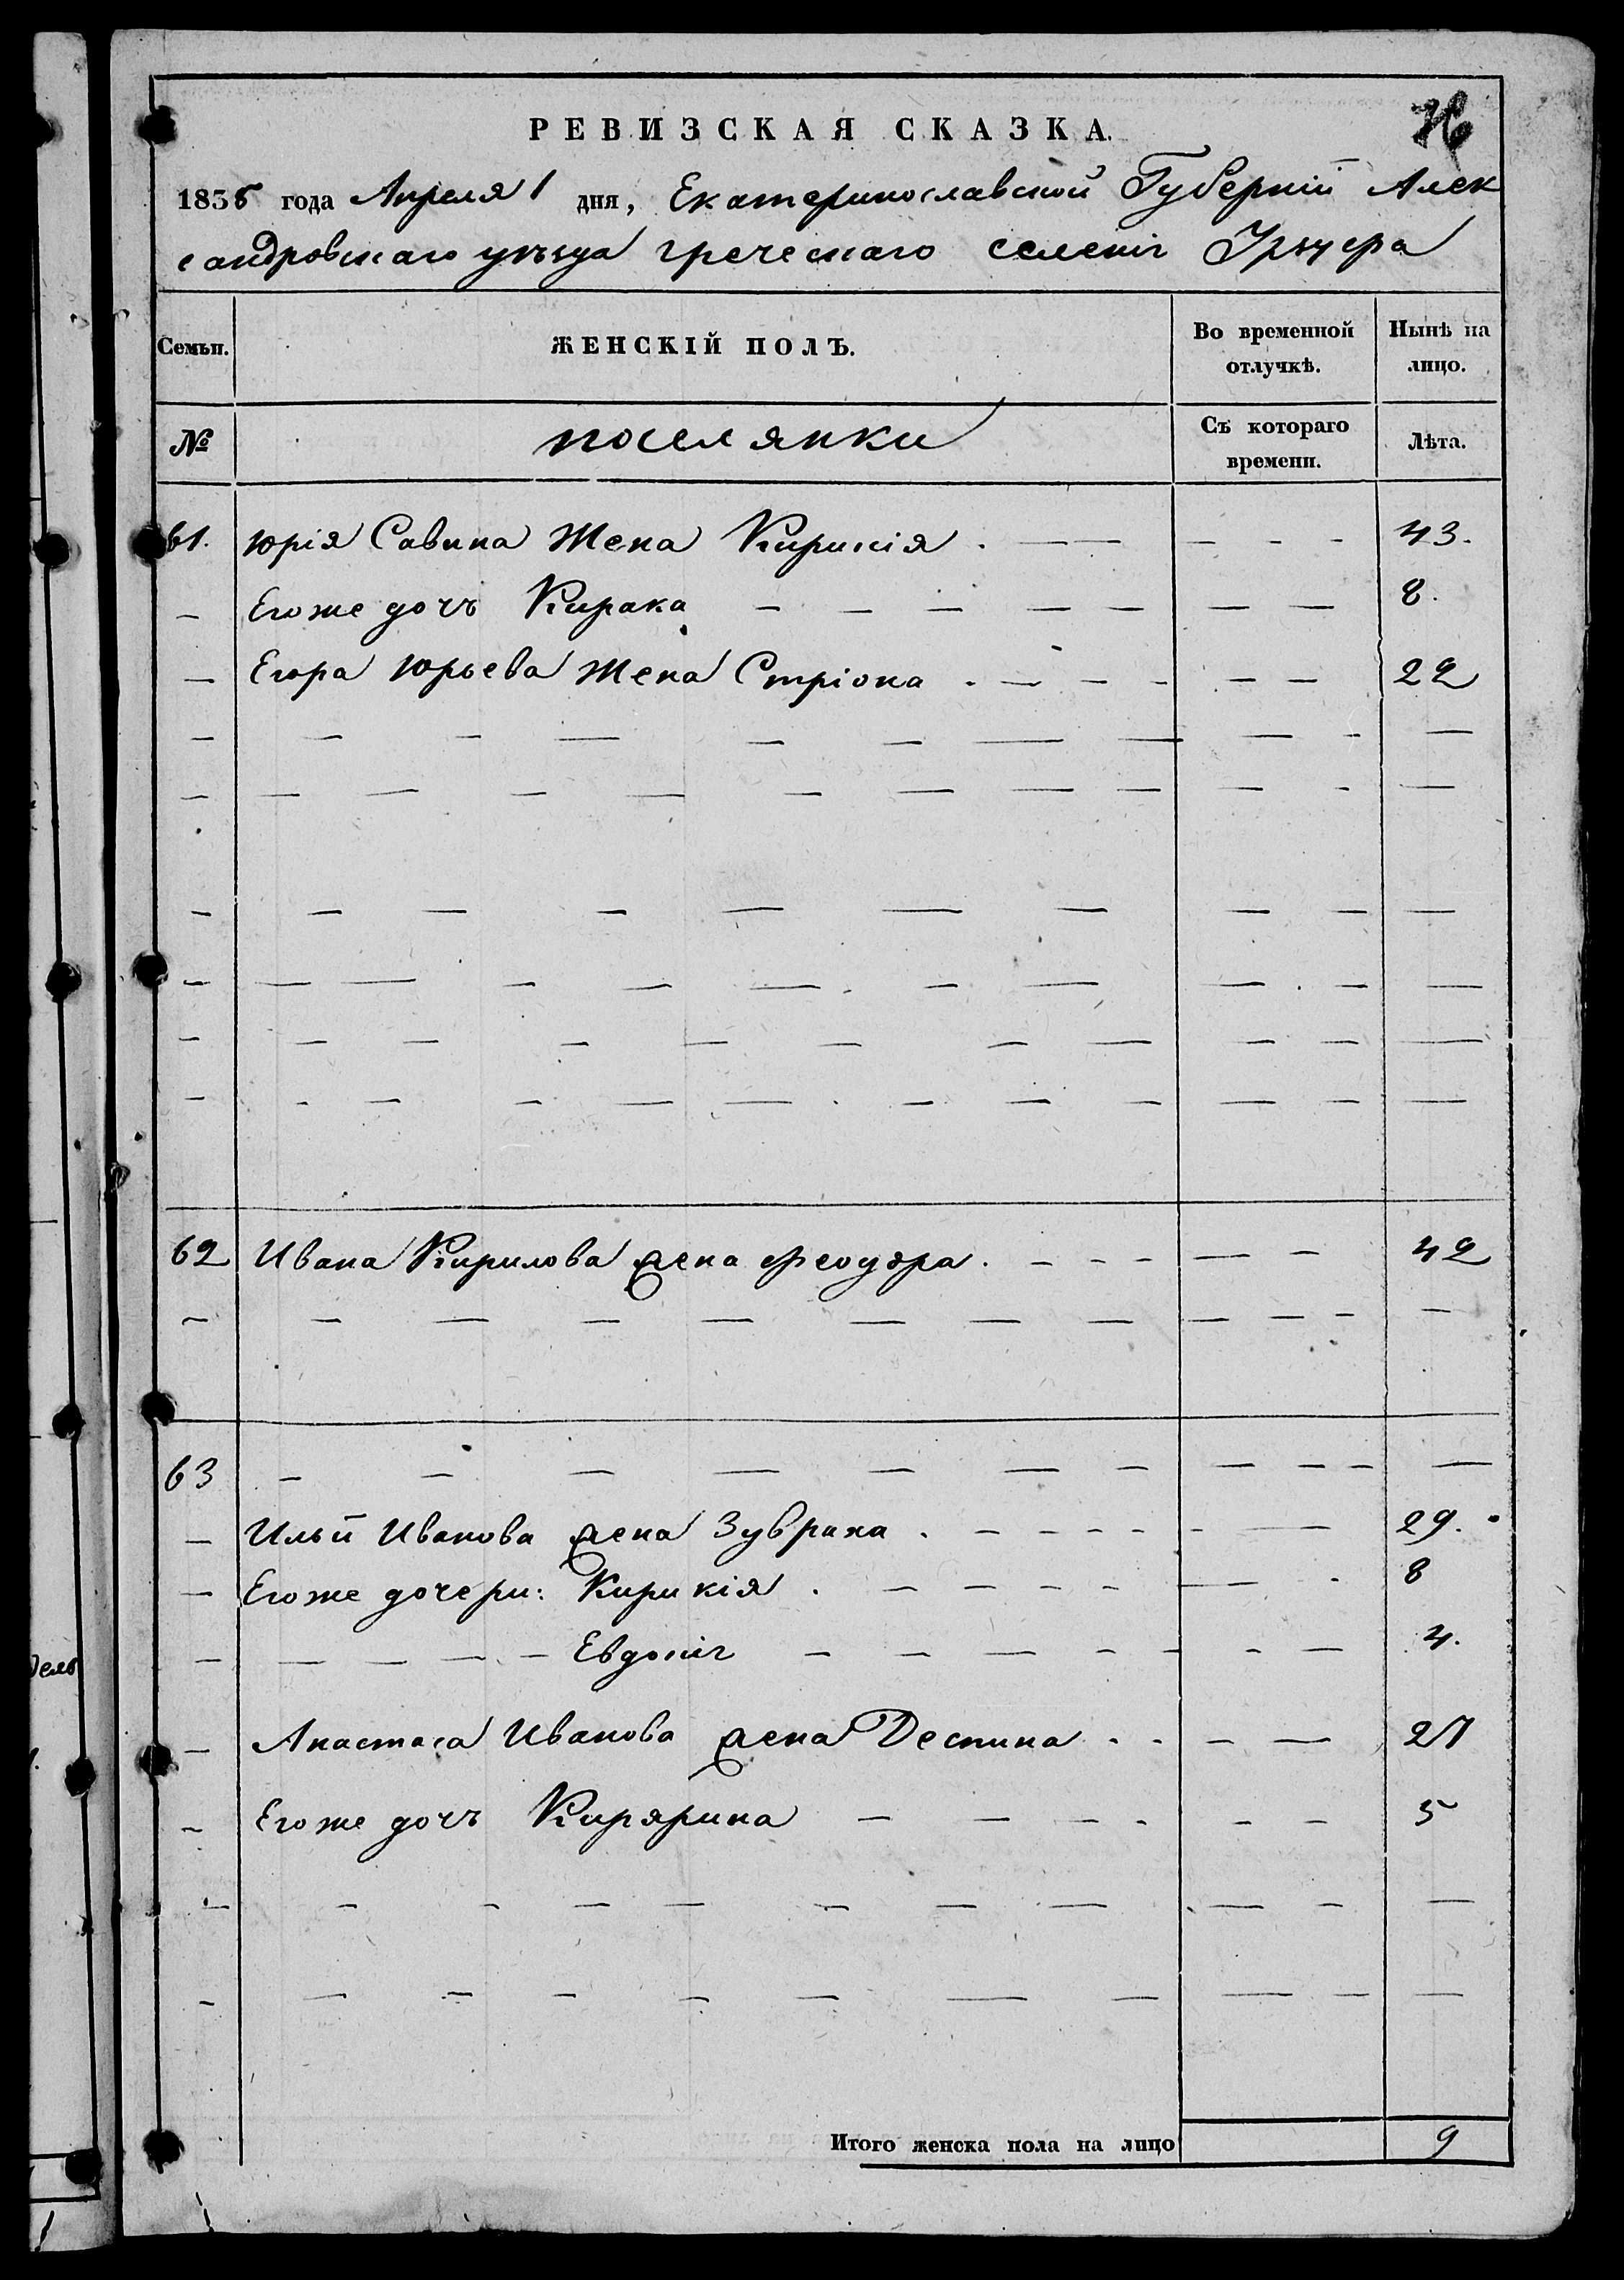 РЕВИЗСКАЯ СКАЗКА.
1835 года Апреля 1 дня, Екатеринославской Губерніи Алек
сандровскаго уѣзда греческаго селенія
Семьи. ЖЕНСКІЙ ПОЛЪ. Во временной отлучкѣ. Нынѣ на лицо.
№ поселянки Съ котораго времени. Лѣта.
61. Юрія Савина Жена Кирикія . — — - - - 43.
— Егоже дочь Кирака — — — — — — — 8.
— Егора Юрьева Жена Стріона . — - - — — 22
62 Ивана Кирилова жена Феодора . - - - — - 42
63 - - — — — — - — - - —
— Ильи Иванова жена Зуврана . - - - - - — 29.
— Егоже дочери: Кирикія . — - - - — - 8
— — — — - Евдокія — - — - - - — 4.
— Анастаса Иванова жена Деспина . . - — 27
- Егоже дочь Кирярина — — - - - - 5
Итого женска пола на лицо 9
дель